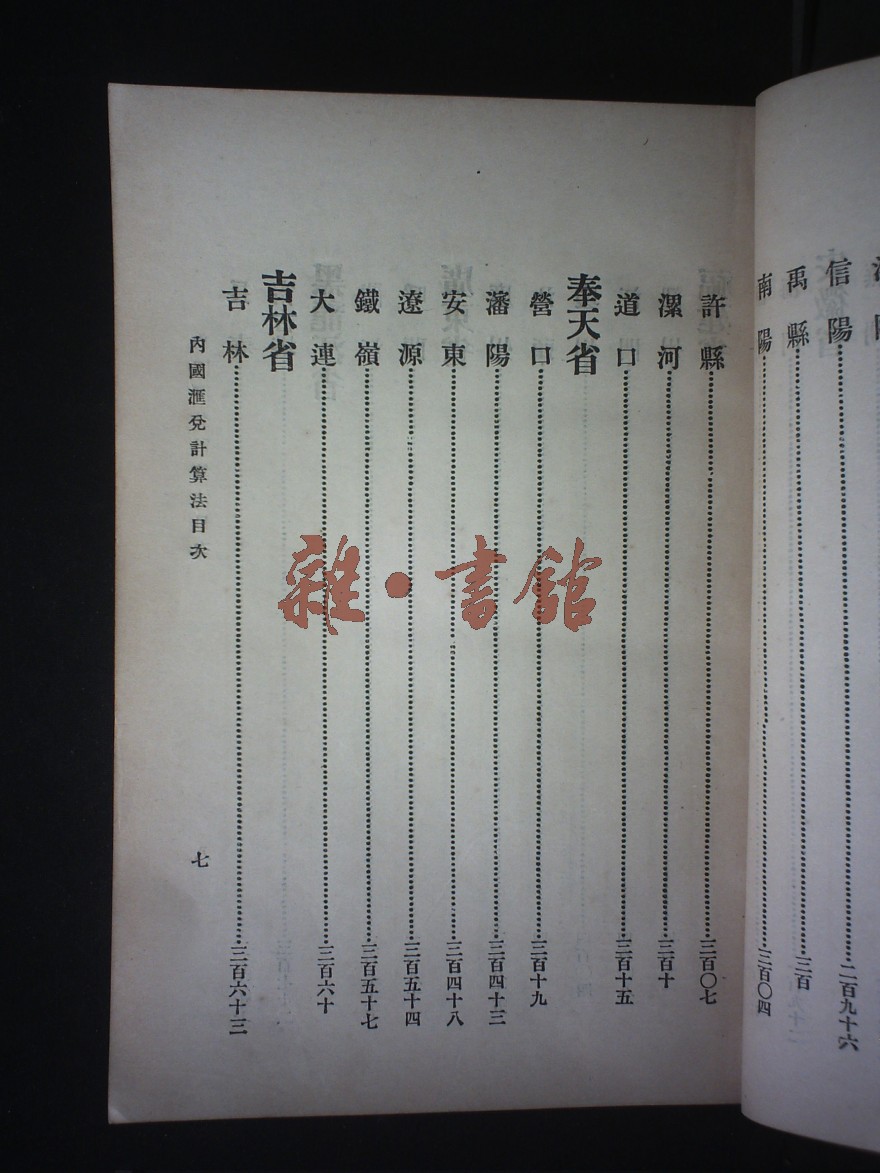 信陽……二百九十六
禹縣……三百
南陽……三百〇四
許縣……三百〇七
漯河……三百十
道口……三百十五
奉天省
營口……三百十九
瀋陽……三百四十三
安東……三百四十八
遼源……三百五十四
鐵嶺……三百五十七
大連……三百六十
吉林省
吉林……三百六十三
內國滙兌計算法目次
七
雜·書館